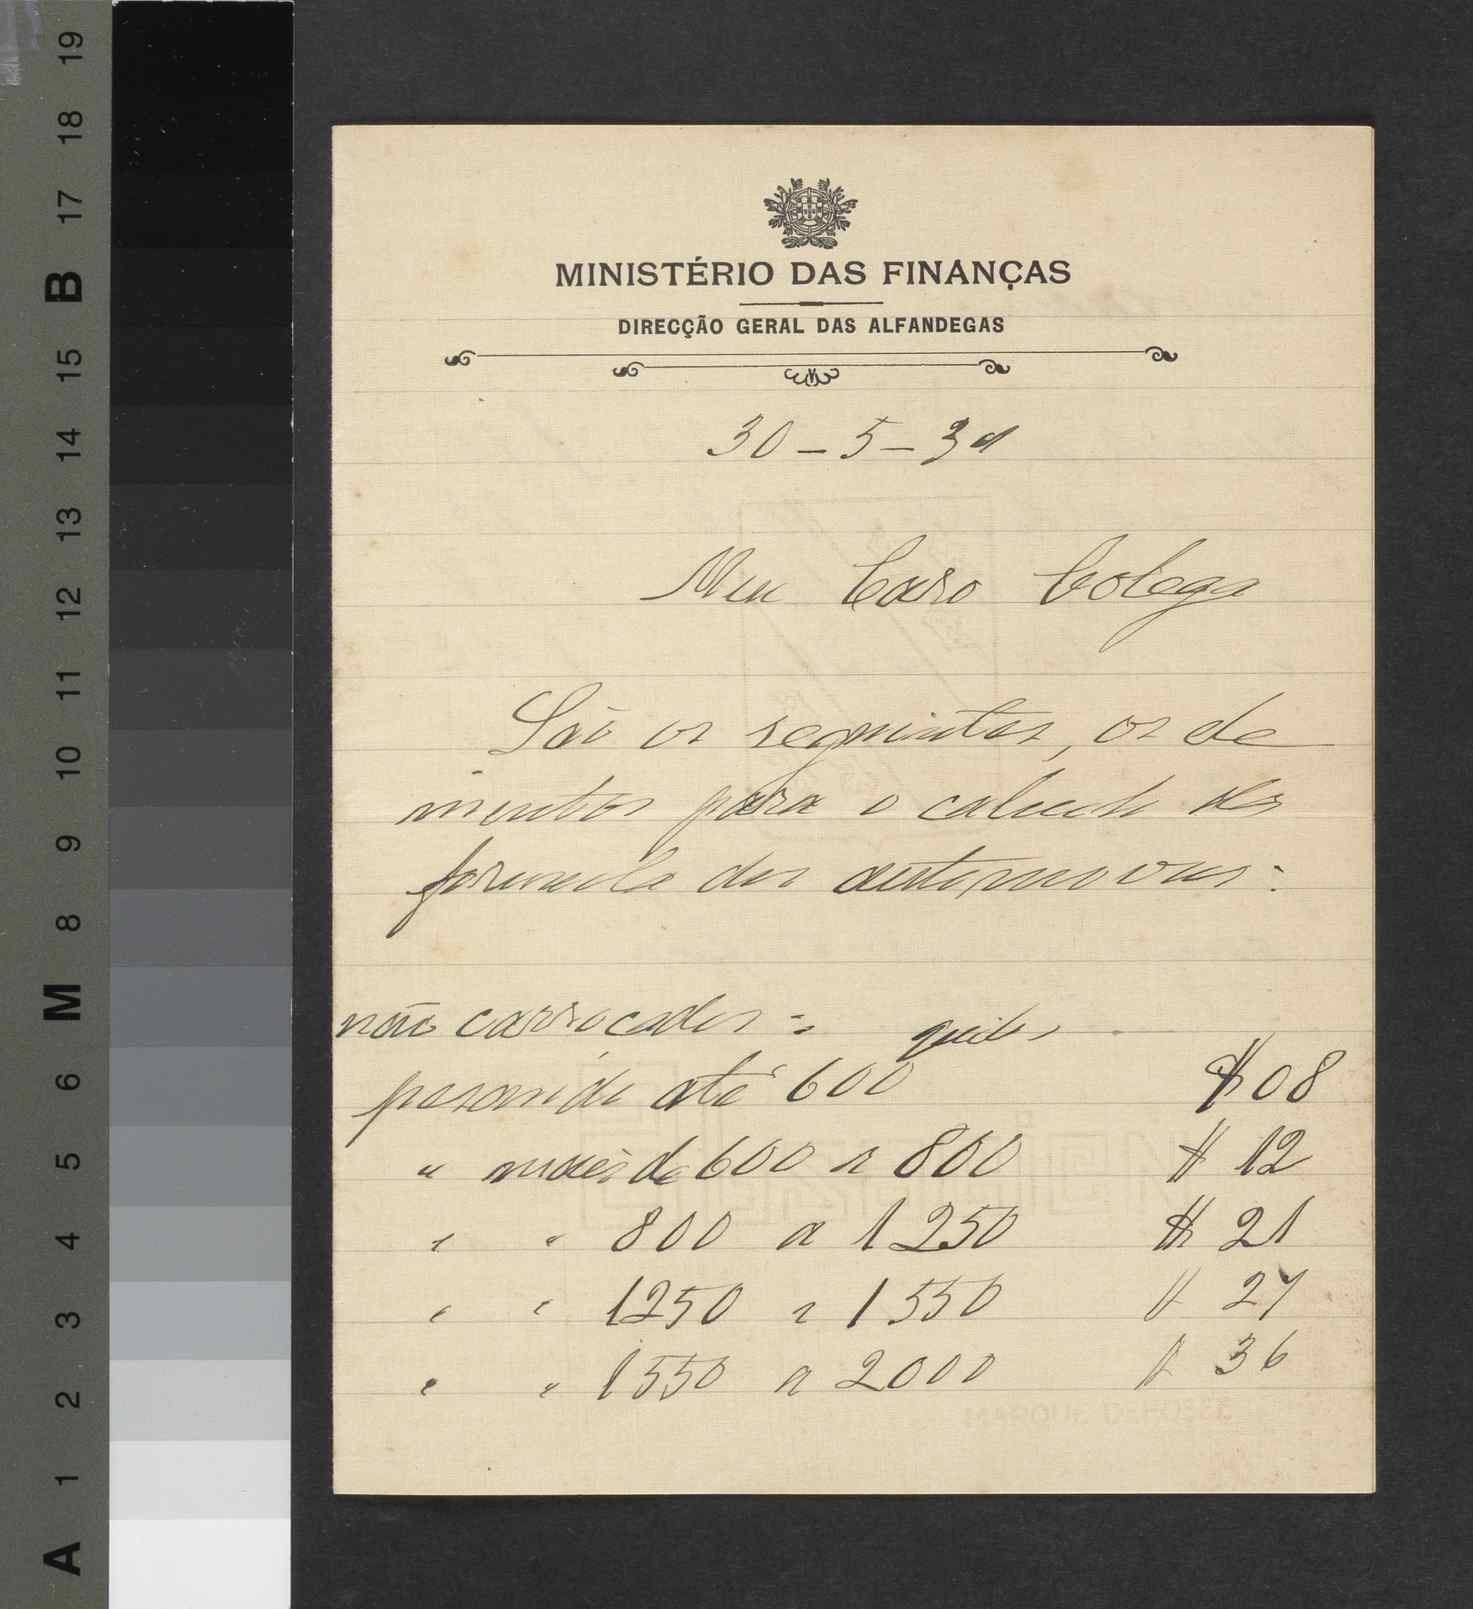 19
18
17
B
15
14
13
12
11
10
9
8
M
6
5
4
3
2
1
A
MINISTÉRIO DAS FINANÇAS
DIRECÇÃO GERAL DAS ALFANDEGAS
30-5-31
Meu Caro Colega
São os seguintes, os ele
mentos para o calculo da
formula dos automoveis:
não carroçados:
quilos
pesando até 600 $08
" mais de 600 a 800 $ 12
" " 800 a 1250 $ 21
" " 1250 a 1550 $ 27
" " 1550 a 2000 $ 36
MARQUE DÉPOSÉE